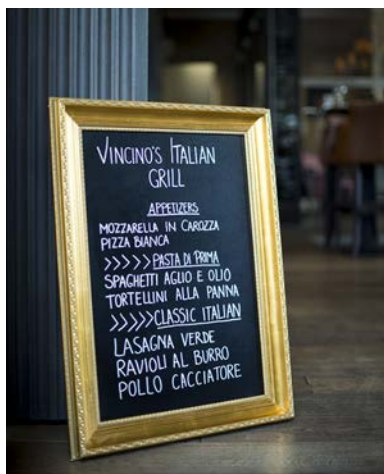 VINCINO'S ITALIAN
GRILL
APPETIZERS
MOZZARELLA IN CAROZZA
PIZZA BIANCA
>>>>>PASTA DI PRIMA
SPAGHETTI AGLIO E OLIO
TORTELLINI ALLA PANNA
>>>>>CLASSIC ITALIAN
LASAGNA VERDE
RAVIOLI AL BURRO
POLLO CACCIATORE